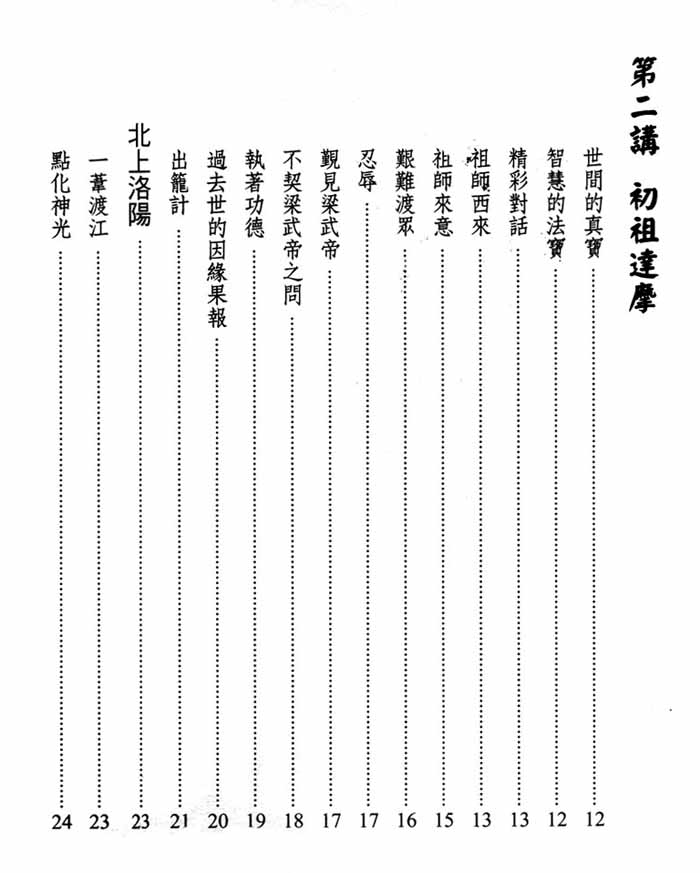 第二講 初祖達摩
世間的真寶 12
智慧的法寶 12
精彩對話 13
祖師西來 13
祖師來意 15
艱難渡眾 16
忍辱 17
覲見梁武帝 17
不契梁武帝之問 18
執著功德 19
過去世的因緣果報 20
出籠計 21
北上洛陽 23
一葦渡江 23
點化神光 24